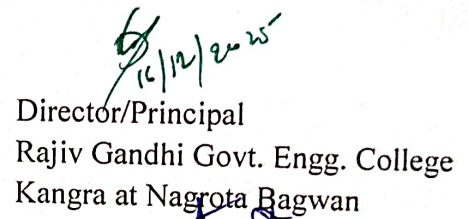 16/12/2025
Director/Principal
Rajiv Gandhi Govt. Engg. College
Kangra at Nagrota Bagwan